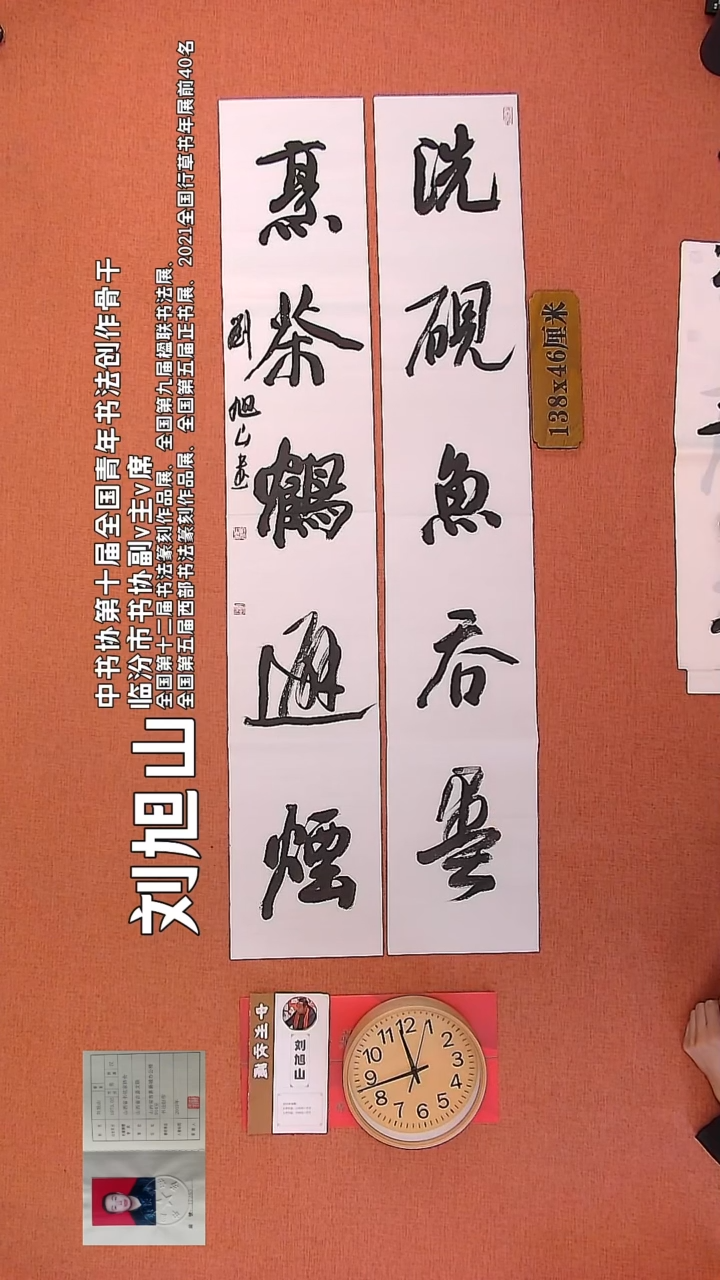 洗砚鱼吞墨
烹茶鹤避烟
刘旭山书
138x46厘米
中书协第十届全国青年书法创作骨干
临汾市书协副v主v席
全国第十二届书法篆刻作品展、全国第九届楹联书法展、
全国第五届西部书法篆刻作品展、全国第五届正书展、2021全国行草书年展前40名
刘旭山
刘旭山
12
1
2
3
4
5
6
7
8
9
10
11